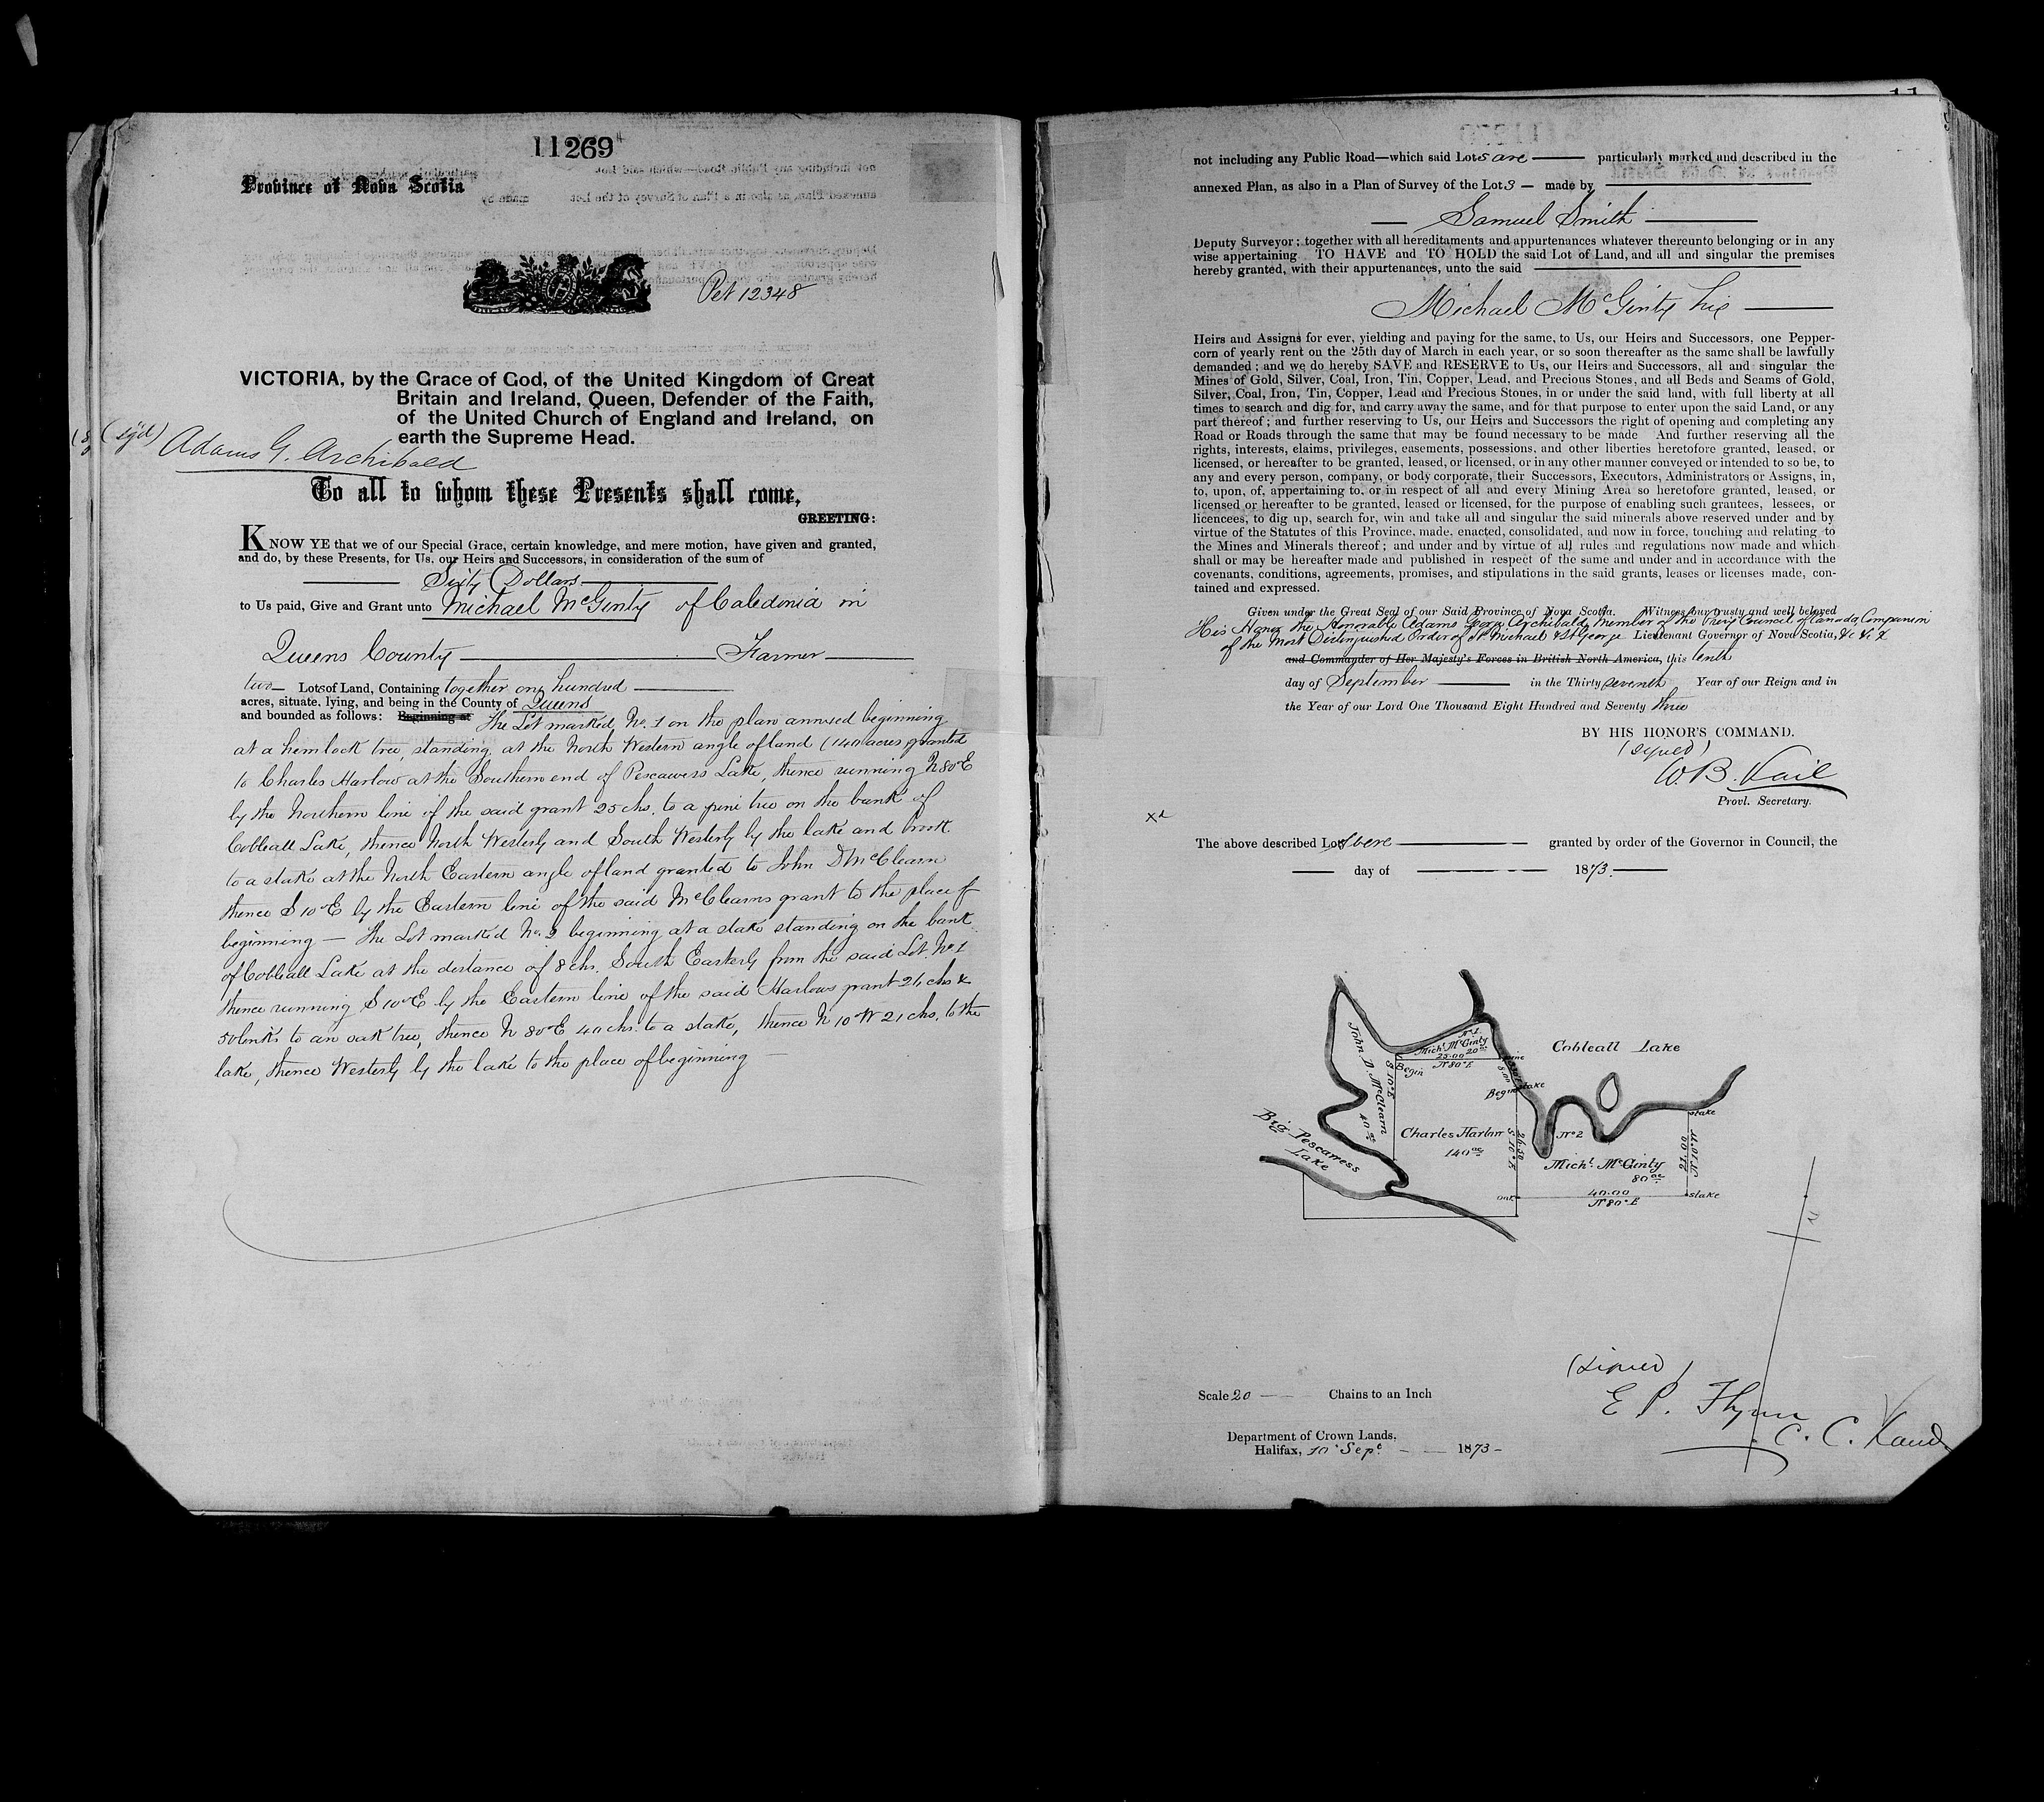 11269
Province of Nova Scotia
Pet 12348
VICTORIA, by the Grace of God, of the United Kingdom of Great
Britain and Ireland, Queen, Defender of the Faith,
of the United Church of England and Ireland, on
earth the Supreme Head.
(sg'd) Adams G. Archibald
To all to whom these Presents shall come,
GREETING:
KNOW YE that we of our Special Grace, certain knowledge, and mere motion, have given and granted,
and do, by these Presents, for Us, our Heirs and Successors, in consideration of the sum of
Sixty Dollars
to Us paid, Give and Grant unto Michael McGinty of Caledonia in
Queens County Farmer
two Lots of Land, Containing together one hundred
acres, situate, lying, and being in the County of Queens
and bounded as follows: Beginning at The Lot marked No. 1 on the plan annexed beginning
at a hemlock tree, standing at the North Western angle of land (140 acres granted
to Charles Harlow at the Southern end of Pescawess Lake, thence running N 80° E
by the Northern line of the said grant 25 chs. to a pine tree on the bank of
Cobleall Lake, thence North Westerly and South Westerly by the lake and brook
to a stake at the North Eastern angle of land granted to John D McClearn
thence S 10° E by the Eastern line of the said McClearns grant to the place of
beginning — The Lot marked No. 2 beginning at a stake standing on the bank
of Cobleall Lake at the distance of 8 chs. South Easterly from the said Lot No 1
thence running S 10° E by the Eastern line of the said Harlows grant 26 chs &
50 links to an oak tree, thence N 80° E 40 chs. to a stake, thence N 10° W 21 chs. to the
lake, thence Westerly by the lake to the place of beginning
not including any Public Road—which said Lots are particularly marked and described in the
annexed Plan, as also in a Plan of Survey of the Lots made by
Samuel Smith
Deputy Surveyor; together with all hereditaments and appurtenances whatever thereunto belonging or in any
wise appertaining TO HAVE and TO HOLD the said Lot of Land, and all and singular the premises
hereby granted, with their appurtenances, unto the said
Michael McGinty his
Heirs and Assigns for ever, yielding and paying for the same, to Us, our Heirs and Successors, one Pepper-
corn of yearly rent on the 25th day of March in each year, or so soon thereafter as the same shall be lawfully
demanded; and we do hereby SAVE and RESERVE to Us, our Heirs and Successors, all and singular the
Mines of Gold, Silver, Coal, Iron, Tin, Copper, Lead, and Precious Stones, and all Beds and Seams of Gold,
Silver, Coal, Iron, Tin, Copper, Lead and Precious Stones, in or under the said land, with full liberty at all
times to search and dig for, and carry away the same, and for that purpose to enter upon the said Land, or any
part thereof; and further reserving to Us, our Heirs and Successors the right of opening and completing any
Road or Roads through the same that may be found necessary to be made And further reserving all the
rights, interests, claims, privileges, easements, possessions, and other liberties heretofore granted, leased, or
licensed, or hereafter to be granted, leased, or licensed, or in any other manner conveyed or intended to so be, to
any and every person, company, or body corporate, their Successors, Executors, Administrators or Assigns, in,
to, upon, of, appertaining to, or in respect of all and every Mining Area so heretofore granted, leased, or
licensed or hereafter to be granted, leased or licensed, for the purpose of enabling such grantees, lessees, or
licencees, to dig up, search for, win and take all and singular the said minerals above reserved under and by
virtue of the Statutes of this Province, made, enacted, consolidated, and now in force, touching and relating to
the Mines and Minerals thereof; and under and by virtue of all rules and regulations now made and which
shall or may be hereafter made and published in respect of the same and under and in accordance with the
covenants, conditions, agreements, promises, and stipulations in the said grants, leases or licenses made, con-
tained and expressed.
Given under the Great Seal of our Said Province of Nova Scotia. Witness our trusty and well beloved
His Honor the Honorable Adams George Archibald, Member of the Privy Council of Canada, Companion
of the Most Distinguished Order of St Michael & St George Lieutenant Governor of Nova Scotia, &c &c &c
and Commander of Her Majesty's Forces in British North America, this tenth
day of September in the Thirty seventh Year of our Reign and in
the Year of our Lord One Thousand Eight Hundred and Seventy three
BY HIS HONOR'S COMMAND.
(signed)
W. B. Vail
Provl. Secretary.
The above described Lots were granted by order of the Governor in Council, the
day of 1873.
Cobleall Lake
No 1
Michl. McGinty
20 ac
25.00
N 80° E
Begin
S 10° E
pine
8.00
Begin
stake
John D. McClearn
40 ac
Big Pescawess
Lake
Charles Harlow
140 ac
26.50
S 10° E
oak
No 2
Michl. McGinty
80 ac
40.00
N 80° E
stake
N 10° W
21.00
stake
N
Scale 20 Chains to an Inch
Department of Crown Lands,
Halifax, 10 Sept. 1873
(Signed)
E P. Flynn